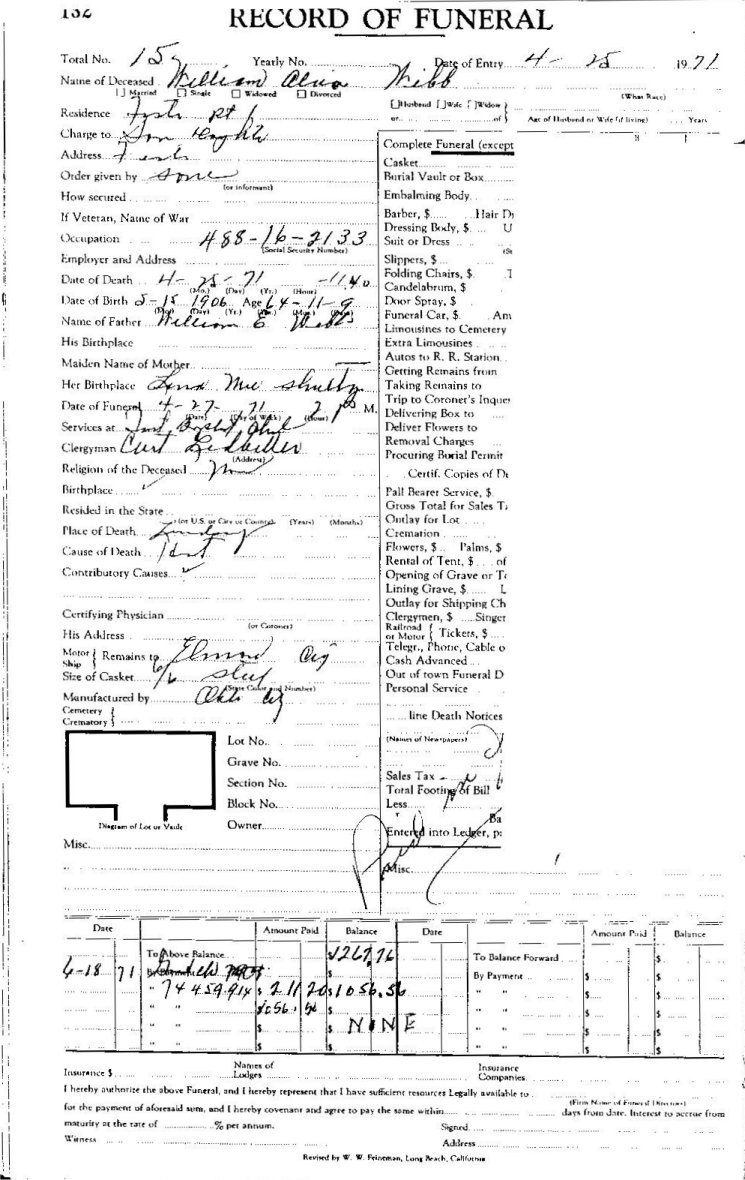 132
RECORD OF FUNERAL
Total No. 15 Yearly No. Date of Entry 4 - 25 1971
Name of Deceased William Alva Webb
[ ] Married [ ] Single [ ] Widowed [ ] Divorced
(What Race)
[ ] Husband [ ] Wife [ ] Widow
or of Age of Husband or Wife (if living) Years
Residence Rt 1
Charge to Son
Address
Order given by
(or informant)
How secured
If Veteran, Name of War
Occupation 488-16-2133
(Social Security Number)
Employer and Address
Date of Death 4-25-71 -11:40
(Mo.) (Day) (Yr.) (Hour)
Date of Birth 5-15 1906 Age 64-11-9
(Mo.) (Day) (Yr.) (Yrs.) (Mos.) (Days)
Name of Father William E Webb
His Birthplace
Maiden Name of Mother
Her Birthplace Lena Mae Shultz
Date of Funeral 4-27-71 2 P M.
(Date) (Day of Week) (Hour)
Services at First Baptist
Clergyman Curt Ledbetter
(Address)
Religion of the Deceased
Birthplace
Resided in the State
(or U.S. or City or County) (Years) (Months)
Place of Death
Cause of Death
Contributory Causes
Certifying Physician
(or Coroner)
His Address
Motor Ship } Remains to Elmond
Size of Casket 6/6
(State Color and Number)
Manufactured by Okla City
Cemetery
Crematory
Lot No.
Grave No.
Section No.
Block No.
Owner
Diagram of Lot or Vault
Misc.
Complete Funeral (except
Casket
Burial Vault or Box
Embalming Body
Barber, $ Hair D
Dressing Body, $ U
Suit or Dress
Slippers, $
Folding Chairs, $
Candelabrum, $
Door Spray, $
Funeral Car, $ Am
Limousines to Cemetery
Extra Limousines
Autos to R. R. Station
Getting Remains from
Taking Remains to
Trip to Coroner's Inques
Delivering Box to
Deliver Flowers to
Removal Charges
Procuring Burial Permit
Certif. Copies of De
Pall Bearer Service, $
Gross Total for Sales T
Outlay for Lot
Cremation
Flowers, $ Palms, $
Rental of Tent, $ of
Opening of Grave or T
Lining Grave, $ L
Outlay for Shipping Ch
Clergymen, $ Singer
Railroad or Motor } Tickets, $
Telegr., Phone, Cable o
Cash Advanced
Out of town Funeral D
Personal Service
line Death Notices
(Names of Newspapers)
Sales Tax
Total Footing of Bill
Less
Ba
Entered into Ledger, p
Misc.
Date Amount Paid Balance Date Amount Paid Balance
To Above Balance 1267.76 To Balance Forward $
6-18 71 By Payment $
" 74 459.914 $ 211 20 $ 1056.56
" " 1056.56
" " $ $ NONE
" " $ $
Insurance $ Names of Lodges Insurance Companies
I hereby authorize the above Funeral, and I hereby represent that I have sufficient resources Legally available to
(Firm Name of Funeral Directors)
for the payment of aforesaid sum, and I hereby covenant and agree to pay the same within days from date. Interest to accrue from
maturity at the rate of % per annum. Signed
Witness Address
Revised by W. W. Feineman, Long Beach, California